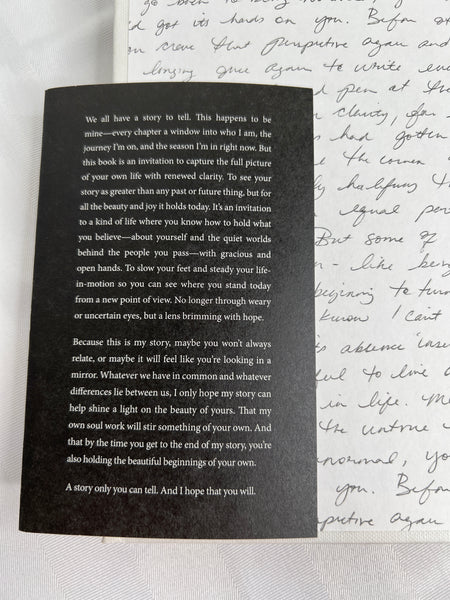 We all have a story to tell. This happens to be
mine—every chapter a window into who I am, the
journey I'm on, and the season I'm in right now. But
this book is an invitation to capture the full picture
of your own life with renewed clarity. To see your
story as greater than any past or future thing, but for
all the beauty and joy it holds today. It's an invitation
to a kind of life where you know how to hold what
you believe—about yourself and the quiet worlds
behind the people you pass—with gracious and
open hands. To slow your feet and steady your life-
in-motion so you can see where you stand today
from a new point of view. No longer through weary
or uncertain eyes, but a lens brimming with hope.
Because this is my story, maybe you won't always
relate, or maybe it will feel like you're looking in a
mirror. Whatever we have in common and whatever
differences lie between us, I only hope my story can
help shine a light on the beauty of yours. That my
own soul work will stir something of your own. And
that by the time you get to the end of my story, you're
also holding the beautiful beginnings of your own.
A story only you can tell. And I hope that you will.
got its hands on you. Before
crave that perspective again and
longing once again to write
pen at the
clarity, for
had gotten
the corner
halfway
equal
But some of
like being
beginning to turn
know I can't
its absence
to live a
in life.
the untrue
normal, you
you. Before
again